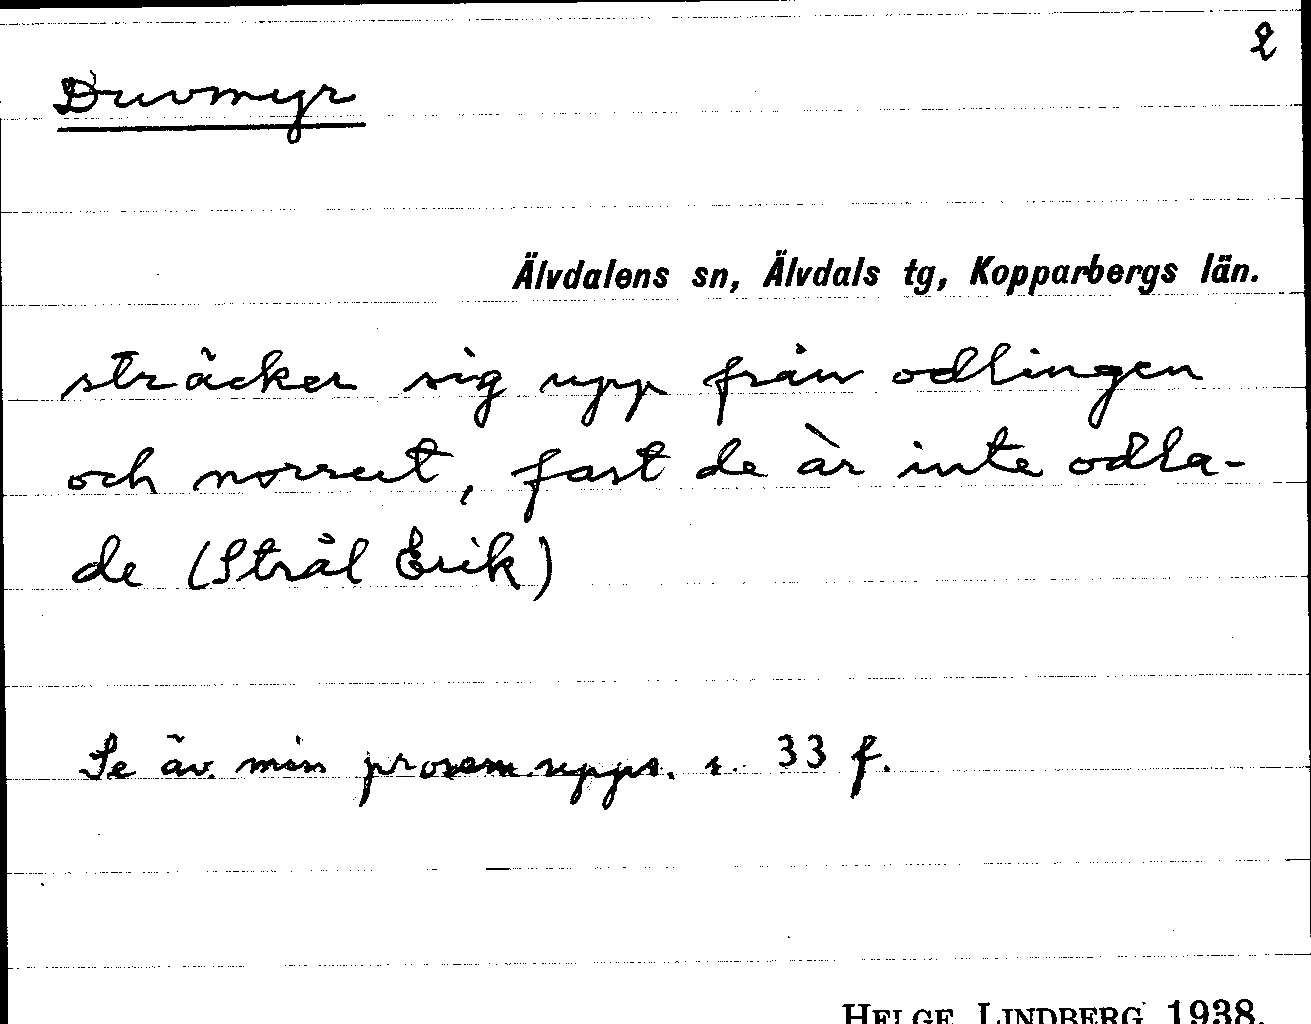 2
Duvmyr
Älvdalens sn, Älvdals tg, Kopparbergs län.
sträcker sig upp från odlingen
och norrut, fast de är inte odla-
de (Strål Erik)
Se äv. min prosem.upps. s. 33 f.
HELGE LINDBERG 1938.